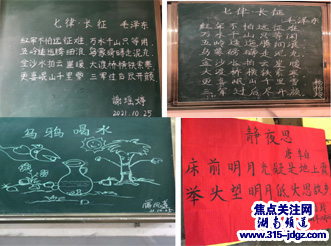 七律·长征 毛泽东
红军不怕远征难 万水千山只等闲
五岭逶迤腾细浪 乌蒙磅礴走泥丸
金沙水拍云崖暖 大渡桥横铁索寒
更喜岷山千里雪 三军过后尽开颜
2021.10.25
七律·长征
毛泽东
红军不怕远征难
万水千山只等闲
五岭逶迤腾细浪
乌蒙磅礴走泥丸
金沙水拍云崖暖
大渡桥横铁索寒
更喜岷山千里雪
三军过后尽开颜
乌鸦喝水
静夜思
唐 李白
床前明月光 疑是地上霜
举头望明月 低头思故乡
焦点关注网
湖南频道
www.315-jdgz.com